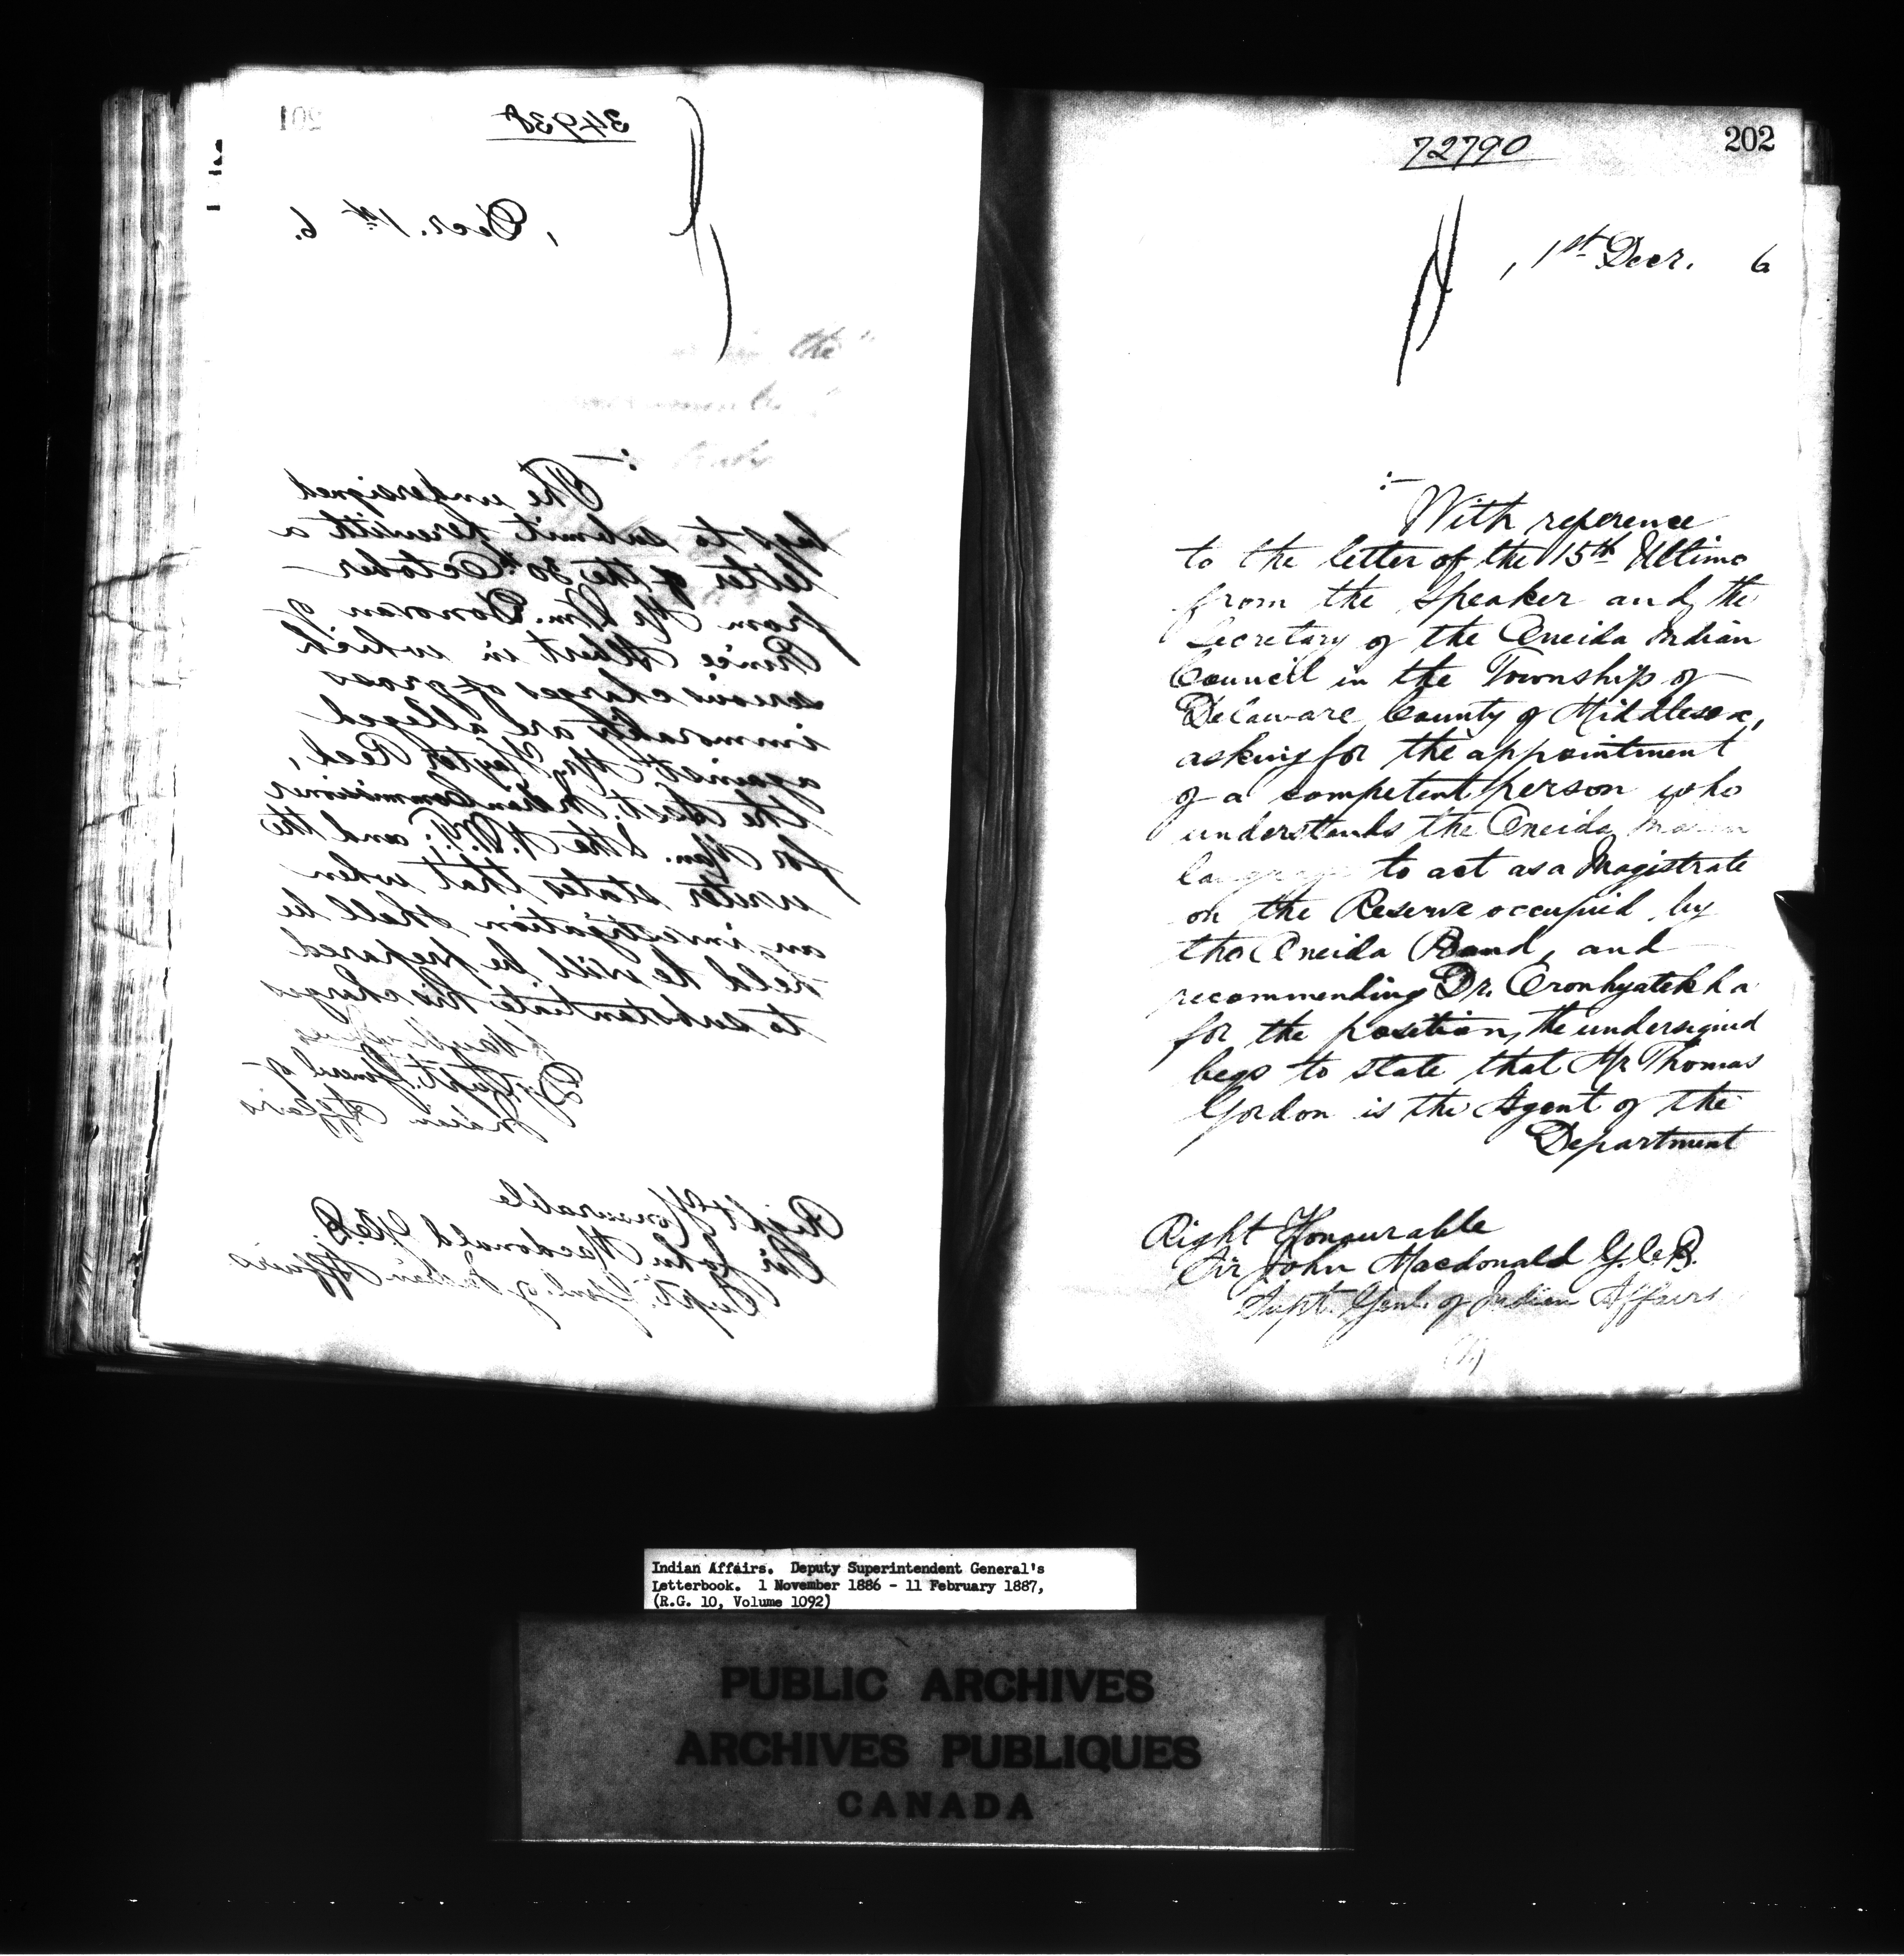 201
34938
, Decr. 1st 6.
:-
The undersigned
begs to submit herewith a
letter of the 30th October
from Mr Wm. Donovan of
Prince Albert in which
serious charges of gross
immorality are alleged
against Mr. Hayter Reed,
the Asst. Indian Commissioner
for Man. & the N.W.T; and the
writer states that when
an investigation shall be
held he will be prepared
to substantiate his charges
Dy. Supt. General of
Indian Affairs
Right Honourable
Sir John Macdonald G.C.B.
Supt. Genl. of Indian Affairs
202
72790
, 1st Decr. 6
:-
With reference
to the letter of the 15th Ultimo
from the Speaker and the
Secretary of the Oneida Indian
Council in the Township of
Delaware, County of Middlesex,
asking for the appointment
of a competent person who
understands the Oneida Indian
language to act as a Magistrate
on the Reserve occupied by
the Oneida Band, and
recommending Dr. Oronhyatekha
for the position, the undersigned
begs to state that Mr Thomas
Gordon is the Agent of the
Department
Right Honourable
Sir John Macdonald G.C.B.
Supt. Genl. of Indian Affairs
Indian Affairs. Deputy Superintendent General's
Letterbook. 1 November 1886 - 11 February 1887,
(R.G. 10, Volume 1092)
PUBLIC ARCHIVES
ARCHIVES PUBLIQUES
CANADA